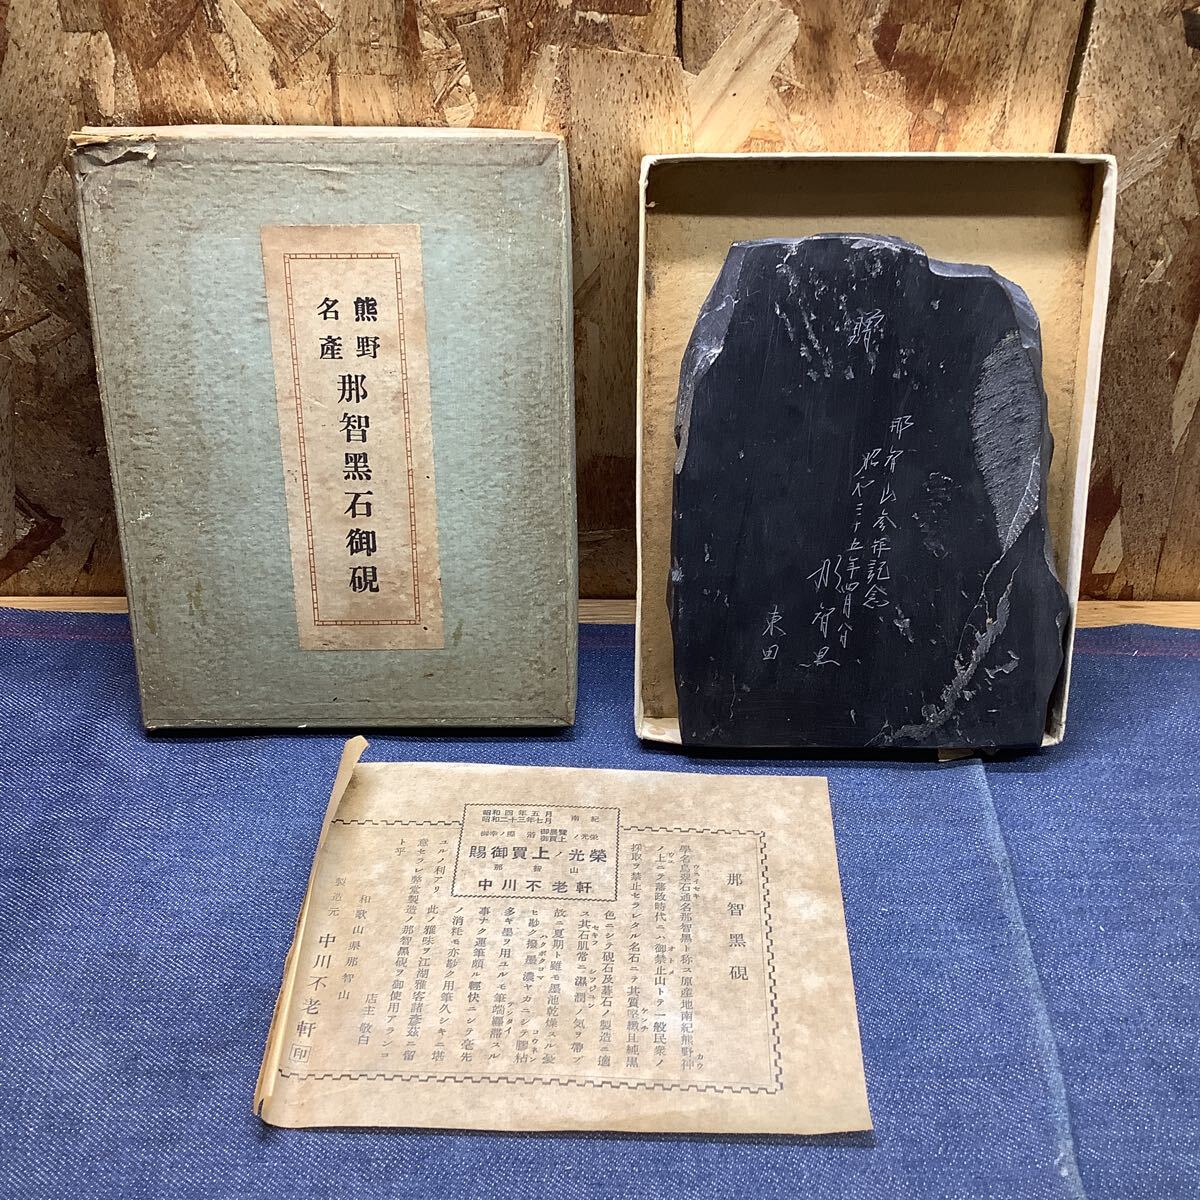 熊野
名產
那智黑石御硯
贈
那智山参拝記念
昭和三十五年四月八日
那智黒
東田
昭和四年五月
昭和二十三年七月
南紀
御幸ノ際
浴
御展覽
御買上
ノ光榮
賜御買上ノ光榮
那智山
中川不老軒
那智黑硯
學名烏翠石通名那智黑ト称ス原産地南紀熊野神
ノ上ニテ藩政時代ニハ御禁止山トテ一般民衆ノ
採取ヲ禁止セラレタル名石ニテ其質堅緻且純黑
色ニシテ硯石及碁石ノ製造ニ適
ス其石肌常ニ濕潤ノ気ヲ帶ブ
故ニ夏期ト雖モ墨池乾燥スル憂
ヒ尠ク撥墨濃ヤカニシテ膠粘
多キ墨ヲ用ユルモ筆端纒滯スル
事ナク運筆頗ル輕快ニシテ毫先
ノ消耗モ亦尠ク用筆久シキニ堪
ユルノ利アリ此ノ雅味ヲ江湖雅客諸彦茲ニ留
意セラレ弊堂製造ノ那智黑硯ヲ御使用アランコ
ト乎
店主敬白
和歌山県那智山
製造元
中川不老軒
印